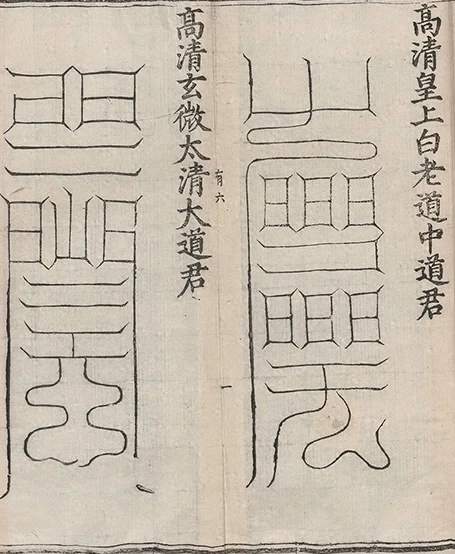 高清皇上白老道中道君
有六
一
高清玄微太清大道君